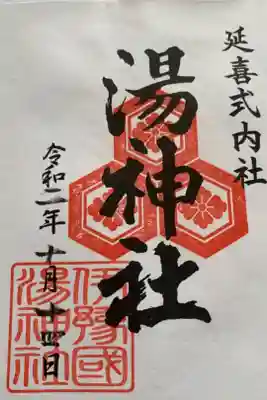 延喜式内社
湯神社
令和二年十月十四日
伊豫國
湯神社